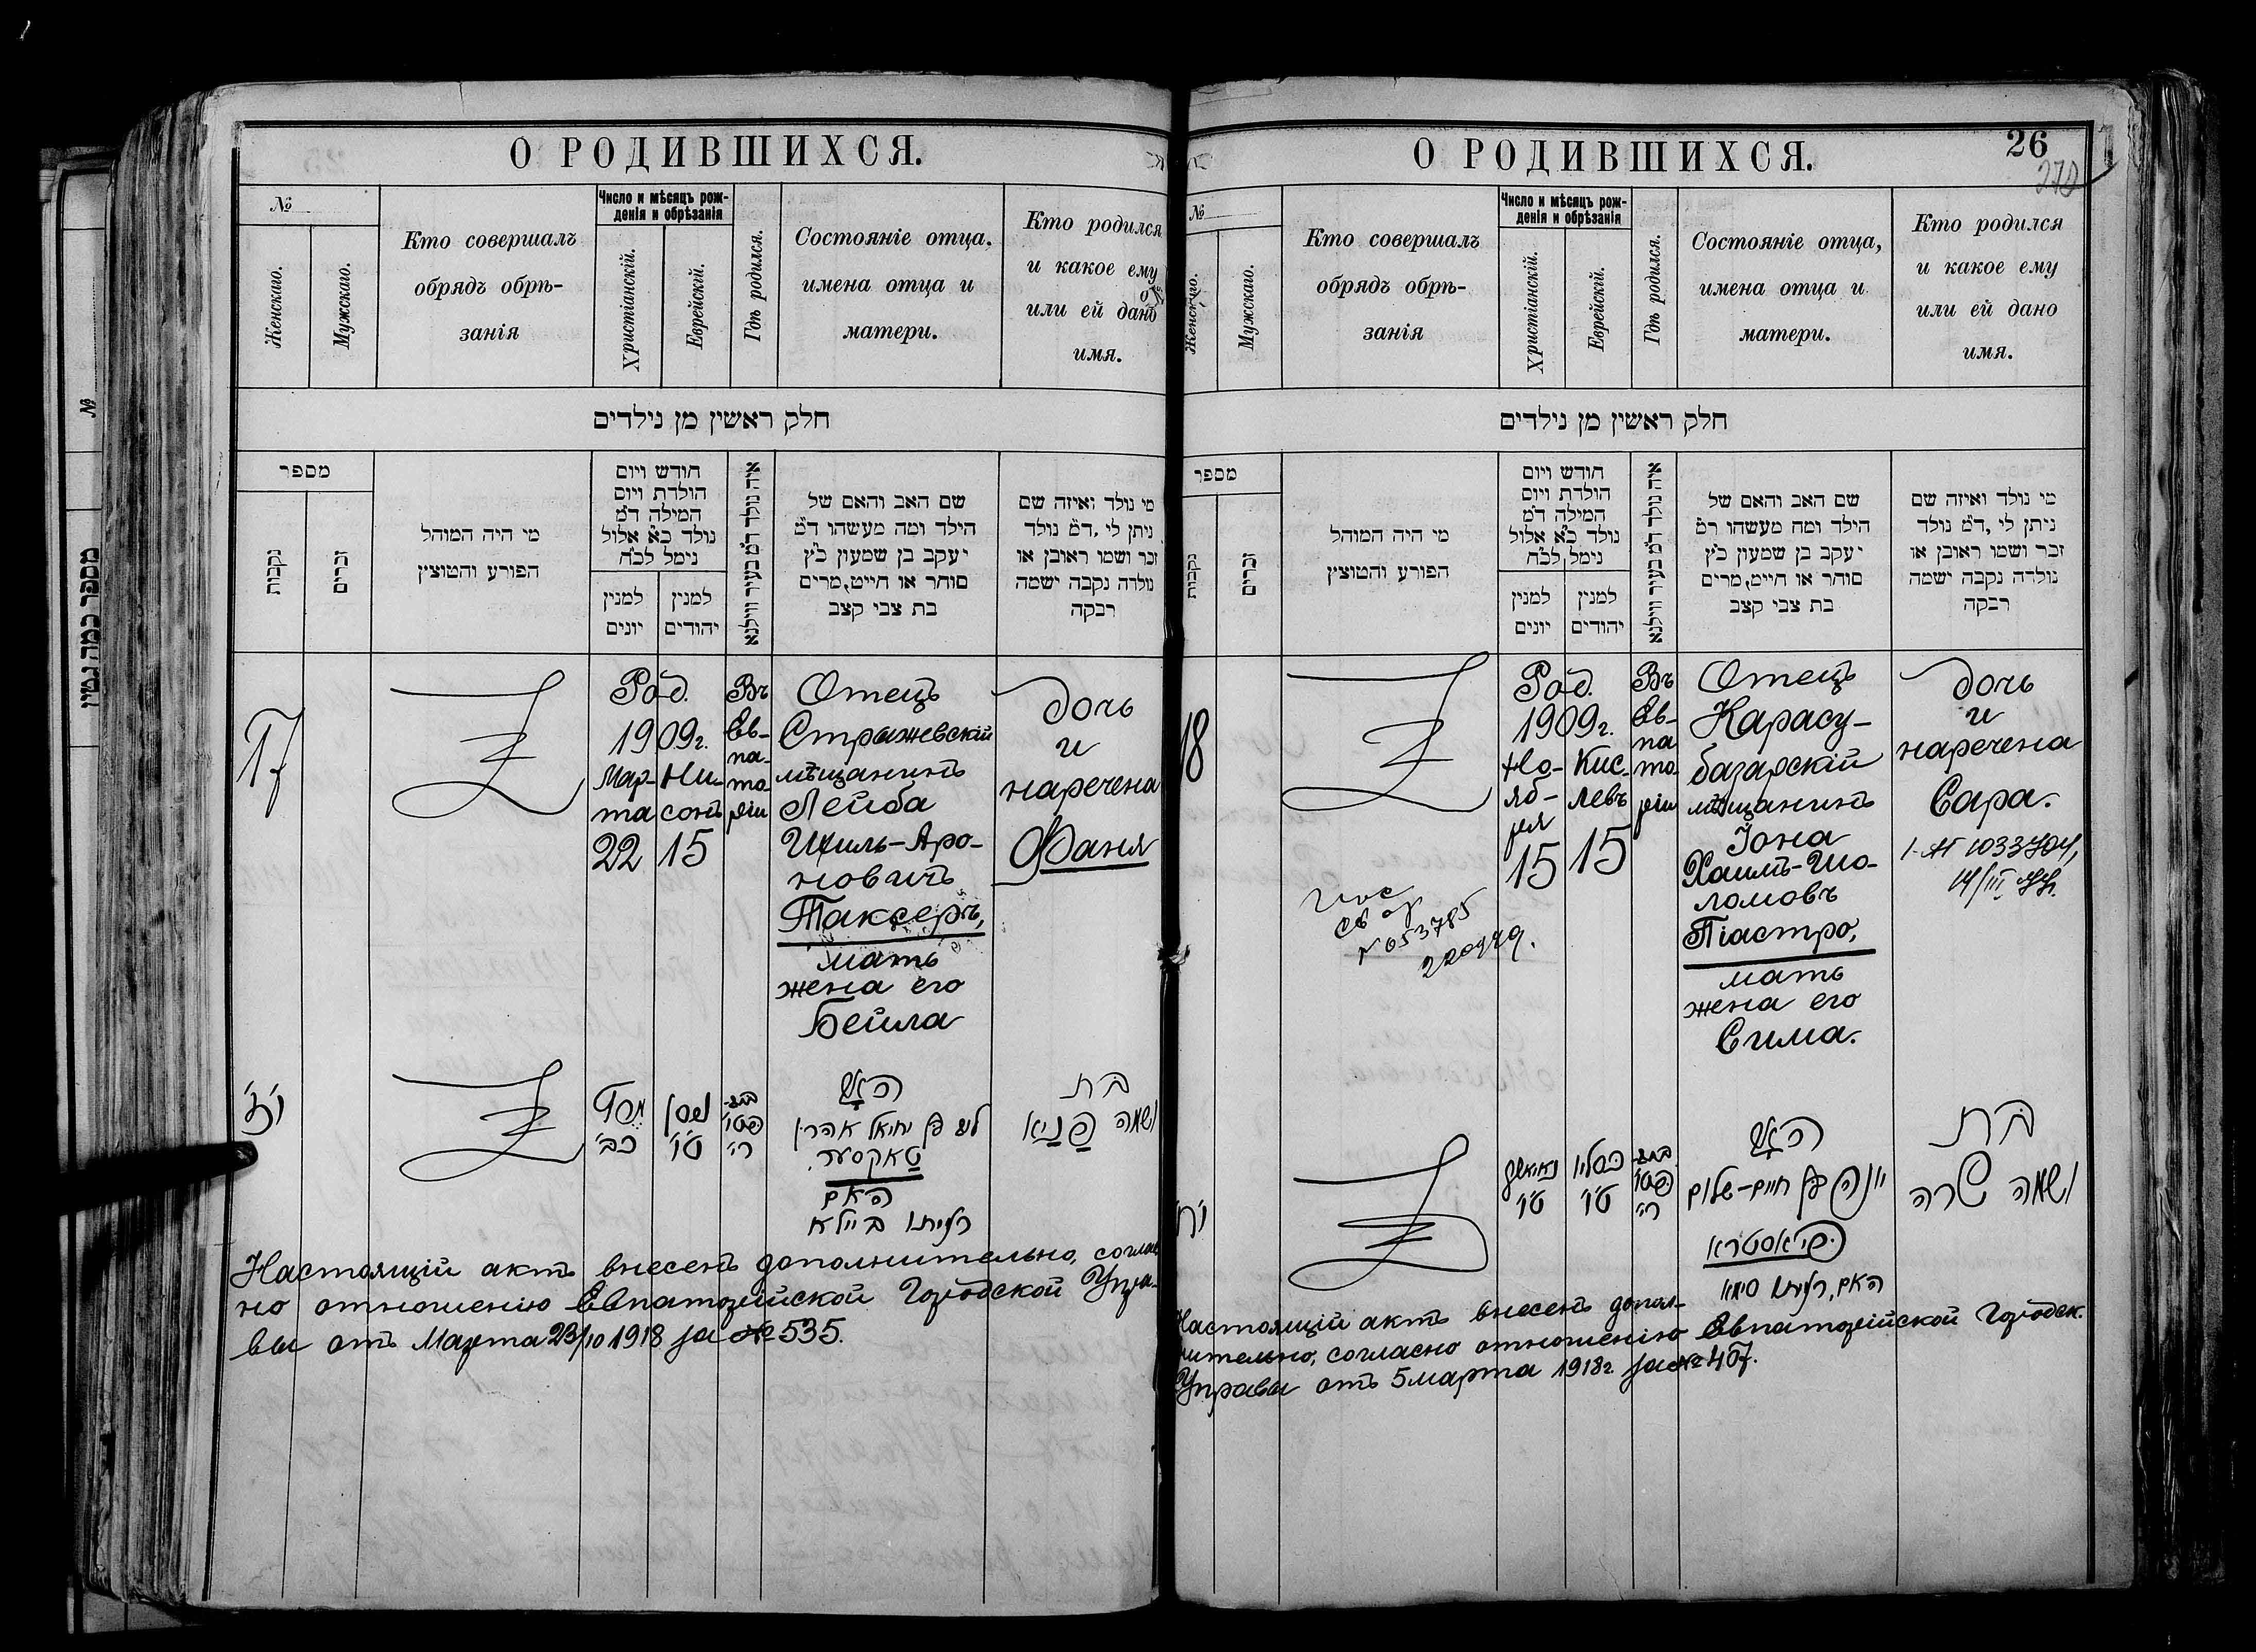 О РОДИВШИХСЯ.
№
Женскаго.
Мужскаго.
Кто совершалъ
обрядъ обрѣ-
занія
Число и мѣсяцъ рож-
денія и обрѣзанія
Христіанскій.
Еврейскій.
Гдѣ родился.
Состояніе отца,
имена отца и
матери.
Кто родился
и какое ему
или ей дано
имя.
חלק ראשין מן נילדים
מספר
נקבות
זכרים
מי היה המוהל
הפורע והמוצץ
חודש ויום
הולדת ויום
המילה דמ
נולד כא אלול
נימל לכח
למנין
יונים
למנין
יהודים
איה נולד דמ בעיר ווילנא
שם האב והאם של
הילד ומה מעשהו דמ
יעקב בן שמעון כץ
סוחר או חייט, מרים
בת צבי קצב
מי נולד ואיזה שם
ניתן לי, דמ נולד
זכר ושמו ראובן או
נולדה נקבה ישמה
רבקה
17
Род.
1909г.
Мар-
та
22
Ни-
сонъ
15
Въ
Ев-
па-
то-
ріи
Отецъ
Стрыжевскій
мѣщанинъ
Лейба
Ихиль-Аро-
новичъ
Таксеръ,
мать
жена его
Бейла
дочь
и
наречена
Фаня
י״ז
מארט
כב׳
ניסן
ט״ו
האב
ליב בן יחיאל אהרן
טאקסער.
האם
רעיתו ביילא
בת
ושמה פניא
Настоящій актъ внесенъ дополнительно, соглас
но отношенію Евпаторійской Городской Упра-
вы отъ Марта 23/10 1918 за №535.
О РОДИВШИХСЯ.
26
270
№
Женскаго.
Мужскаго.
Кто совершалъ
обрядъ обрѣ-
занія
Число и мѣсяцъ рож-
денія и обрѣзанія
Христіанскій.
Еврейскій.
Гдѣ родился.
Состояніе отца,
имена отца и
матери.
Кто родился
и какое ему
или ей дано
имя.
חלק ראשין מן נילדים
מספר
נקבות
זכרים
מי היה המוהל
הפורע והמוצץ
חודש ויום
הולדת ויום
המילה דמ
נולד כא אלול
נימל לכח
למנין
יונים
למנין
יהודים
איה נולד דמ בעיר ווילנא
שם האב והאם של
הילד ומה מעשהו דמ
יעקב בן שמעון כץ
סוחר או חייט, מרים
בת צבי קצב
מי נולד ואיזה שם
ניתן לי, דמ נולד
זכר ושמו ראובן או
נולדה נקבה ישמה
רבקה
18
Род.
1909г.
Но-
яб-
ря
15
Кис-
левъ
15
Въ
Ев-
па
то-
ріи
Отецъ
Карасу-
базарскій
мѣщанинъ
Іона
Хаимъ-Шо-
ломовъ
Піастро,
мать
жена его
Сима.
дочь
и
наречена
Сара.
св
№053785
י״ח
ט״ו
כסליו
ט״ו
האב
יונה בן חיים-שלום
פיאסטרא
האם, רעיתו סימא
בת
ושמה שרה
Настоящій актъ внесенъ допол-
нительно, согласно отношенію Евпаторійской Городск.
Управы отъ 5 марта 1918г. за №407.
№
מספר